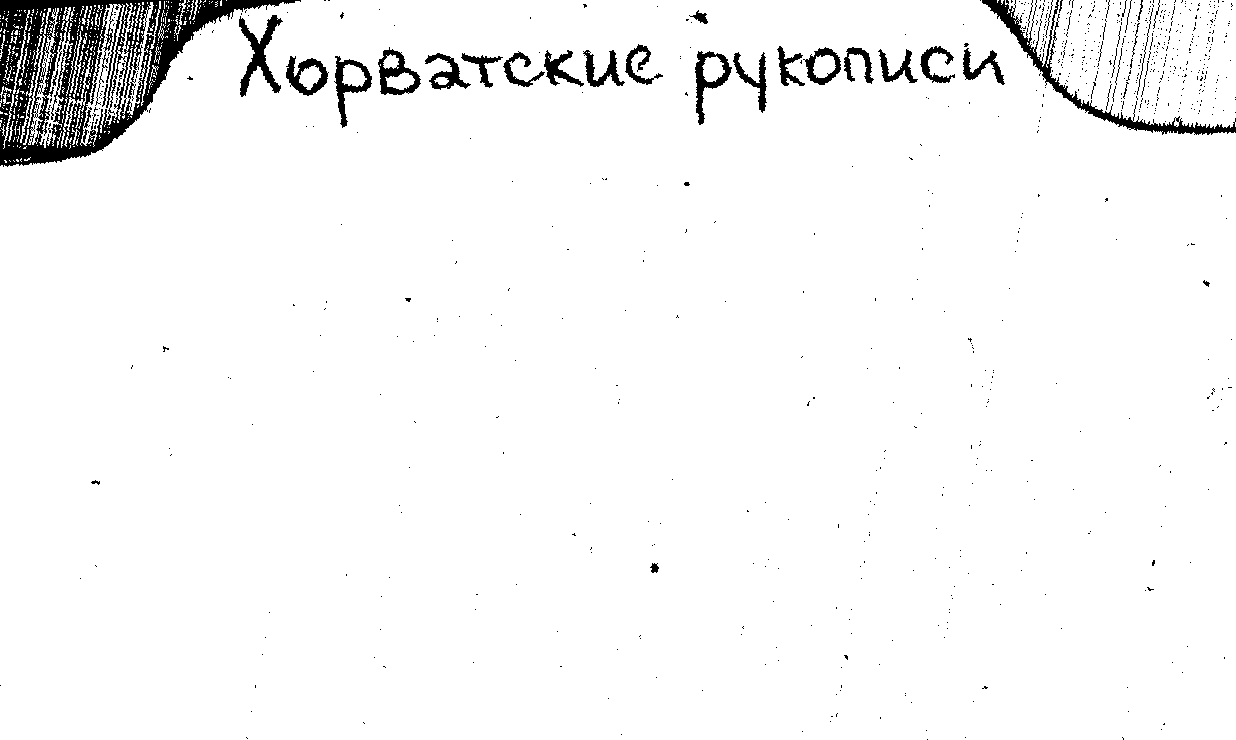 Хорватские рукописи